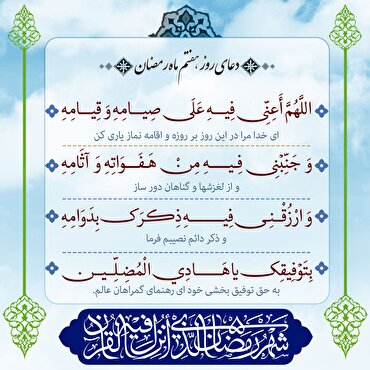 دعای روز هفتم ماه رمضان
اللَّهُمَّ أَعِنِّی فِیهِ عَلَی صِیَامِهِ وَ قِیَامِهِ
ای خدا مرا در این روز بر روزه و اقامه نماز یاری کن
وَ جَنِّبْنِی فِیهِ مِنْ هَفَوَاتِهِ وَ آثَامِهِ
و از لغزشها و گناهان دور ساز
وَ ارْزُقْنِی فِیهِ ذِکْرَکَ بِدَوَامِهِ
و ذکر دائم نصیبم فرما
بِتَوْفِیقِکَ یا هَادِیَ الْمُضِلِّینَ
به حق توفیق بخشی خود ای رهنمای گمراهان عالم.
شهر رمضان الذی انزل فیه القرآن